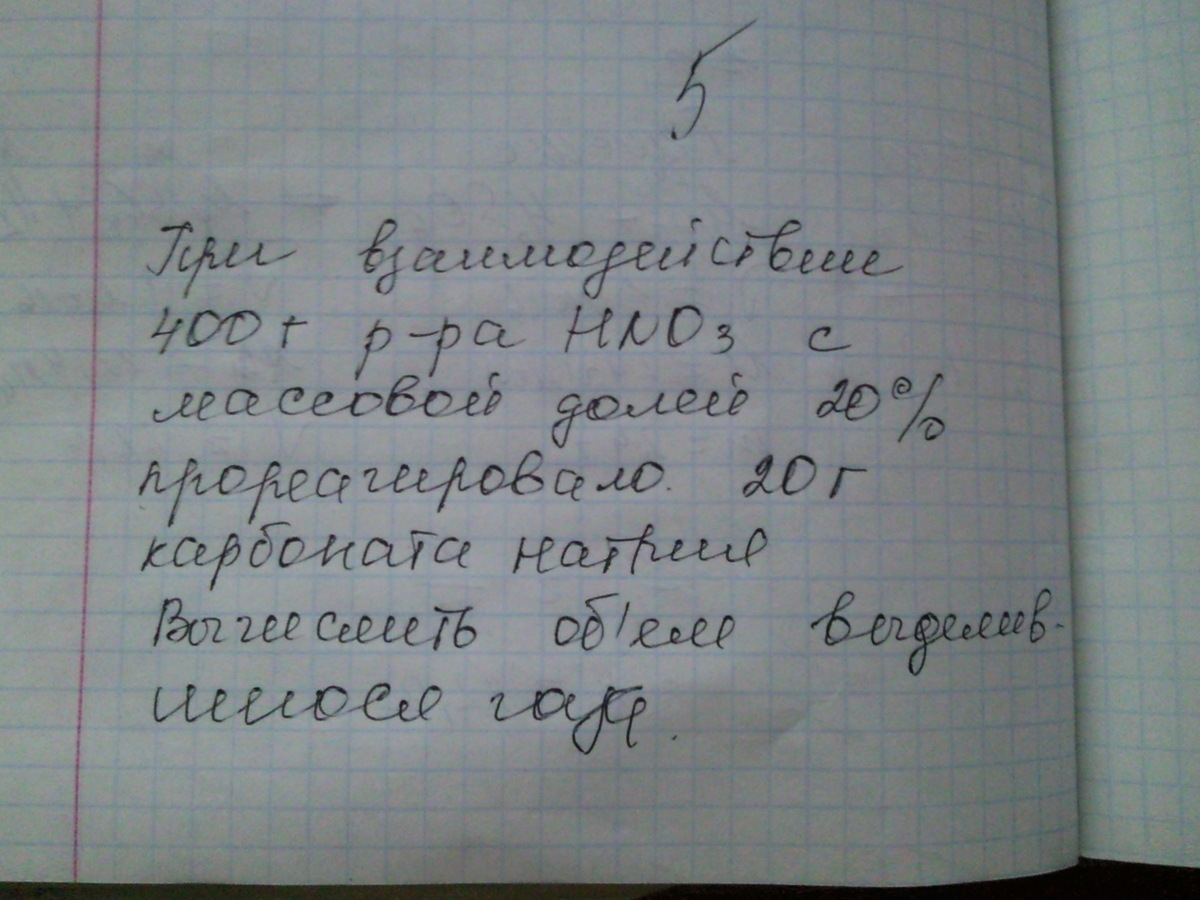 5
При взаимодействии
400г р-ра HNO3 с
массовой долей 20%
прореагировало 20г
карбоната натрия
Вычислить об'ем выделив-
шигося газа.